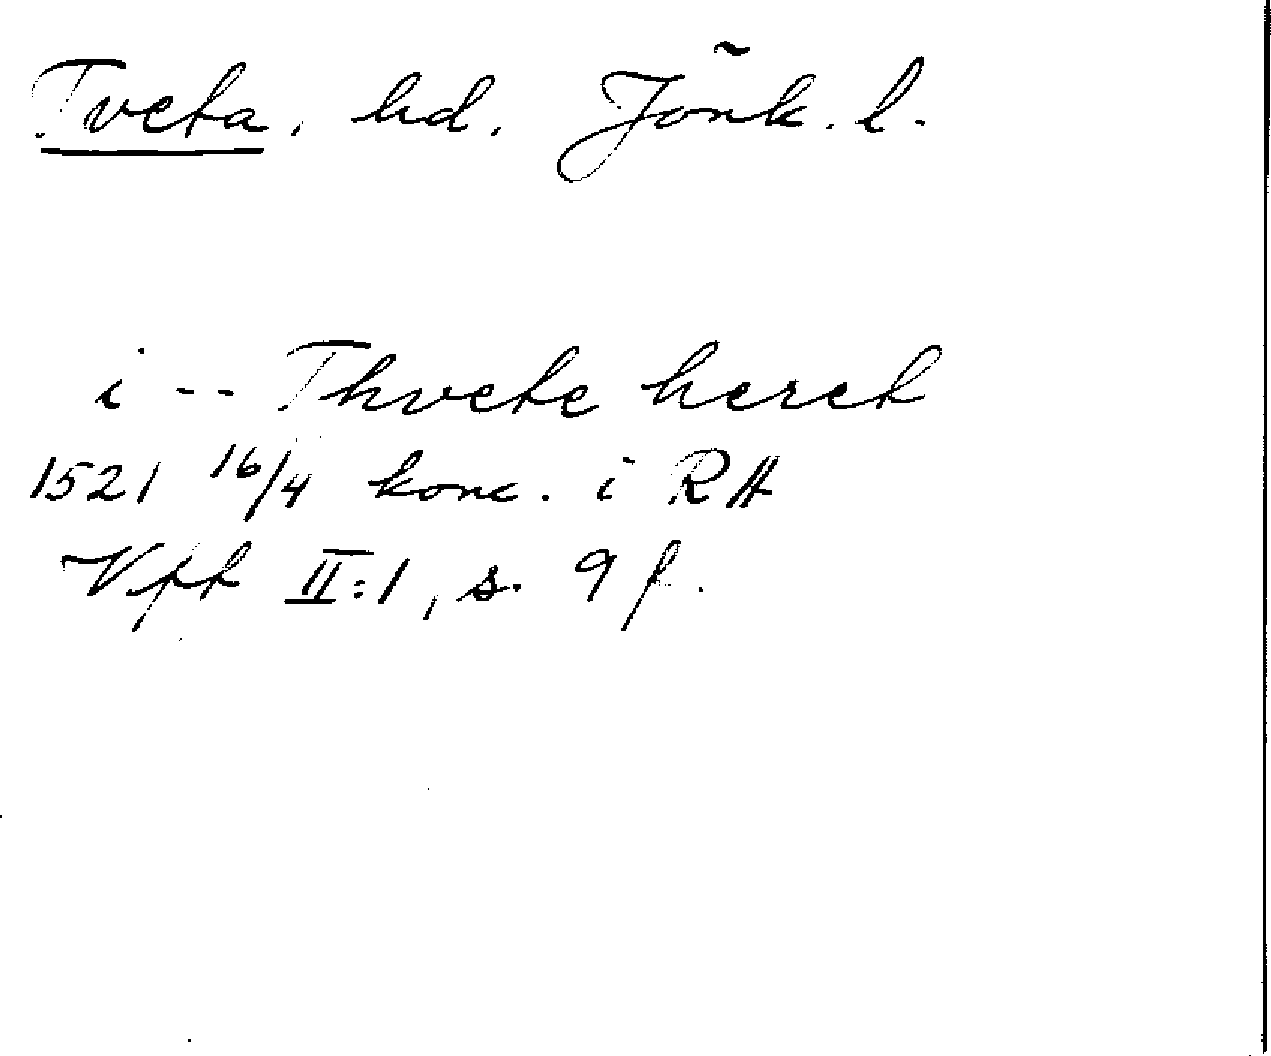 Tveta, hd. Jönk. l.
i -- Thvete heret
1521 16/4 konc. i RA
Vpk II:1, s. 9 f.